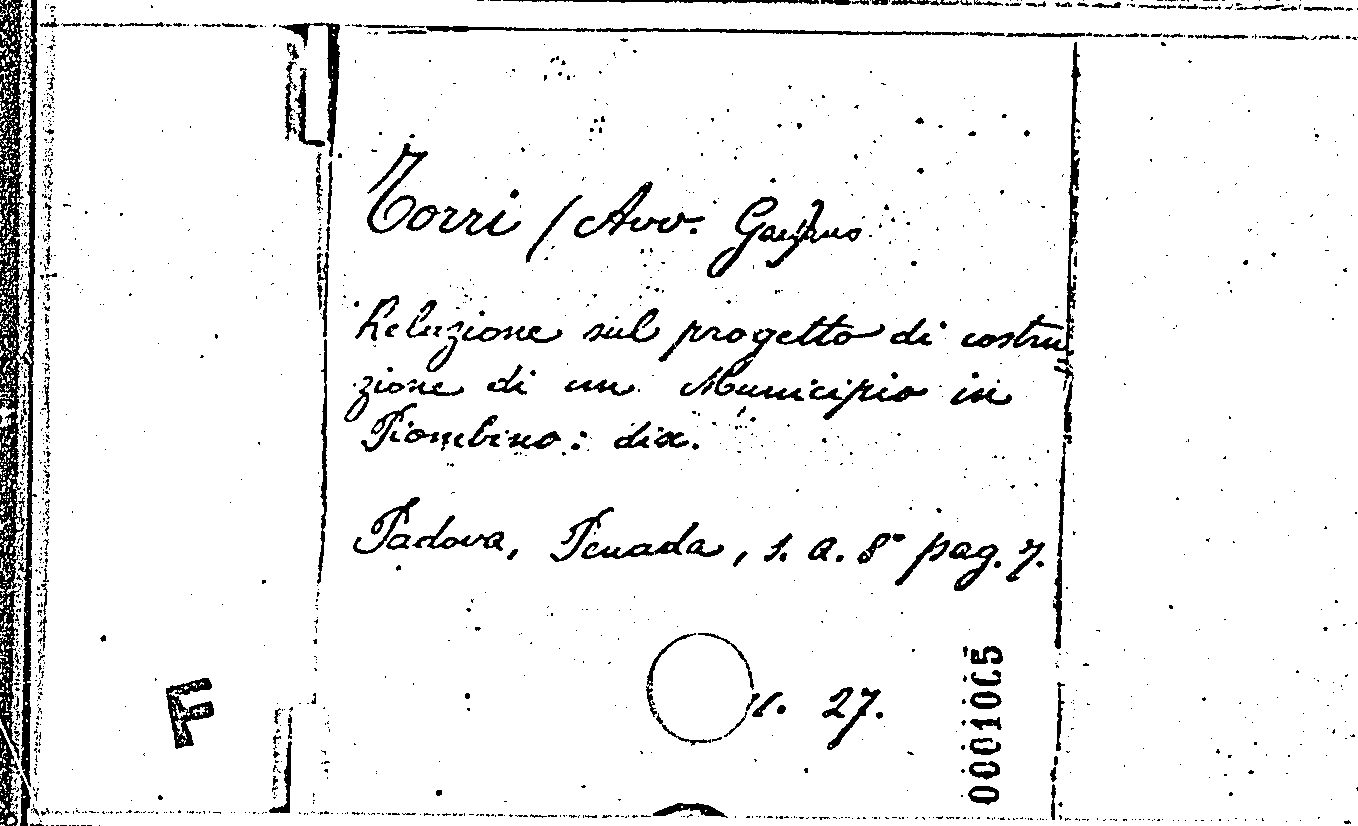 Torri / Avv. Gaspare
Relazione sul progetto di costru
zione di un Municipio in
Piombino: dix.
Padova, Penada, s. a. 8° pag. 7.
27.
0001005
F